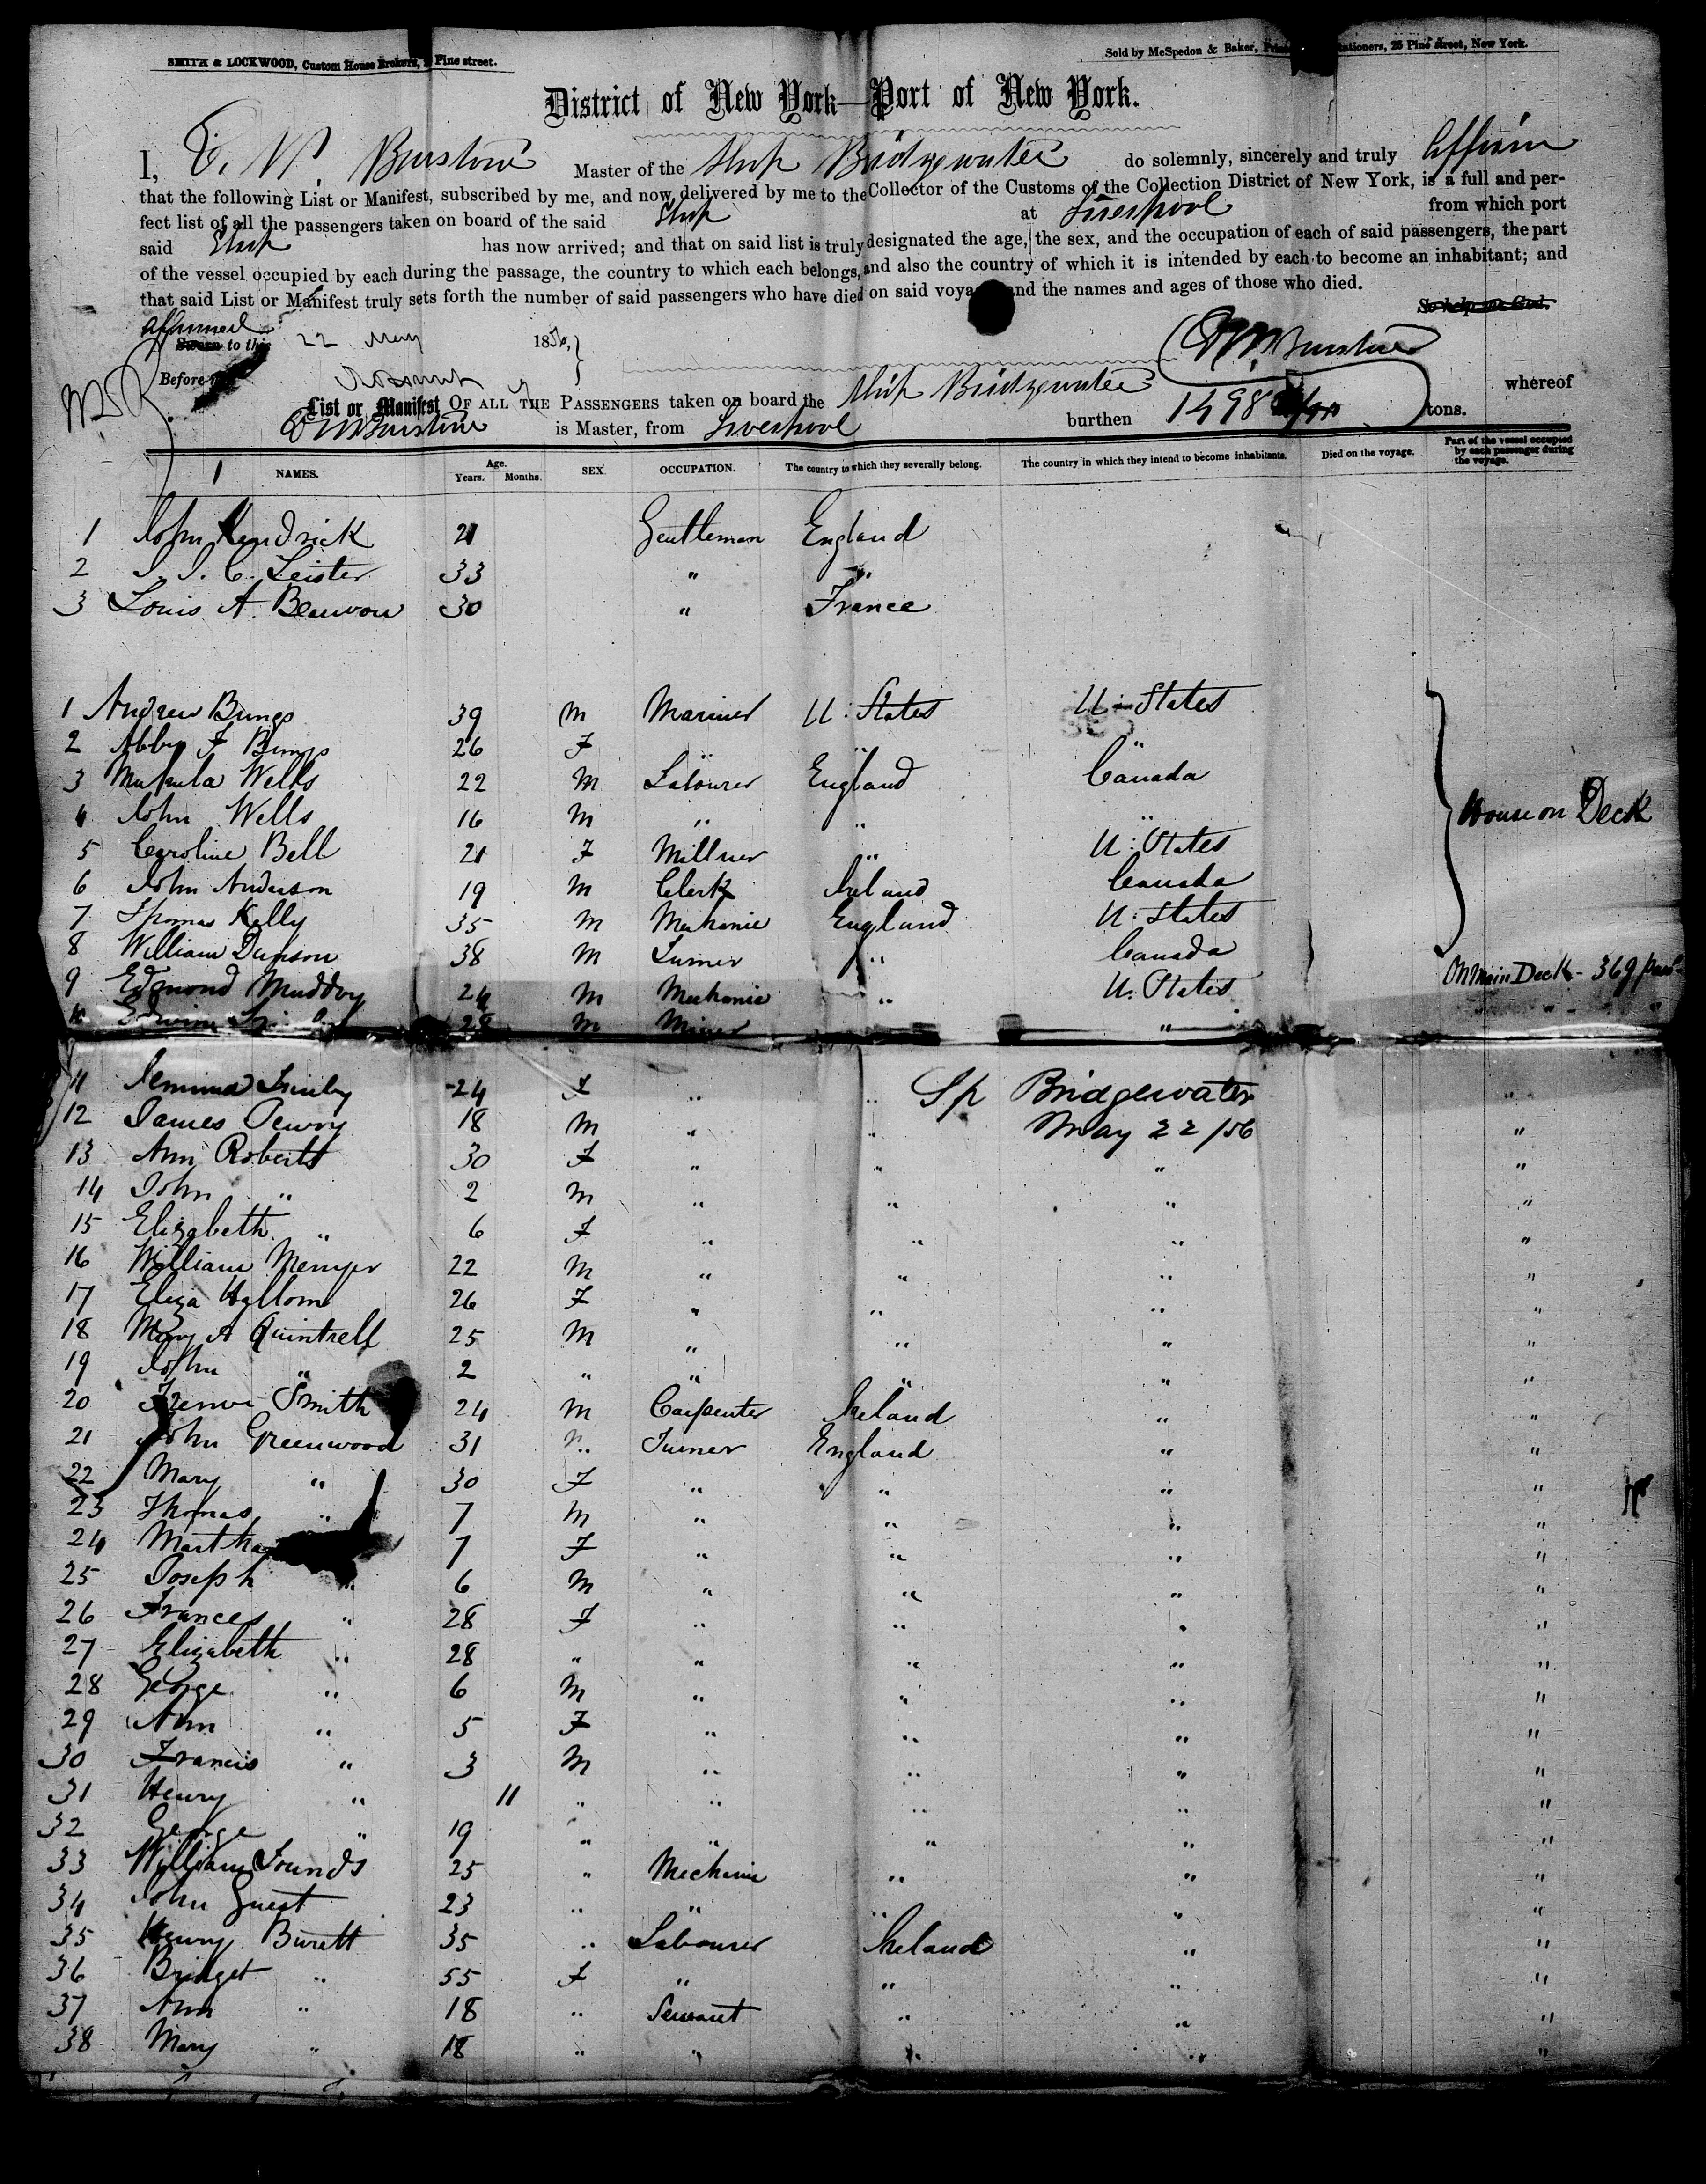 SMITH & LOCKWOOD, Custom House Brokers, Pine street.
Sold by McSpedon & Baker, Stationers, 25 Pine street, New York.
District of New York—Port of New York.
I, Master of the Ship Bridgewater do solemnly, sincerely and truly affirm
that the following List or Manifest, subscribed by me, and now delivered by me to the Collector of the Customs of the Collection District of New York, is a full and per-
fect list of all the passengers taken on board of the said Ship at Liverpool from which port
said Ship has now arrived; and that on said list is truly designated the age, the sex, and the occupation of each of said passengers, the part
of the vessel occupied by each during the passage, the country to which each belongs, and also the country of which it is intended by each to become an inhabitant; and
that said List or Manifest truly sets forth the number of said passengers who have died on said voyage and the names and ages of those who died.
So help me God.
affirmed
Sworn to this 22 May 1856,
Before
List or Manifest OF ALL THE PASSENGERS taken on board the Ship Bridgewater whereof
is Master, from Liverpool burthen 1498 tons.
NAMES. Age. Years. Months. SEX. OCCUPATION. The country to which they severally belong. The country in which they intend to become inhabitants. Died on the voyage. Part of the vessel occupied by each passenger during the voyage.
1 John Kendrick 21 Gentleman England
2 Leister 33 " "
3 Louis A. 30 " France
1 Andrew Bungs 39 M Mariner U. States U. States
2 Abby F Bungs 26 F " "
3 Wells 22 M Labourer England Canada
4 John Wells 16 M " " "
House on Deck
5 Caroline Bell 21 F Millner " U. States
6 John Anderson 19 M Clerk Ireland Canada
7 Thomas Kelly 35 M Mechanic England U. States
8 William 38 M " Canada
9 Edmond Muddoy 24 M Mechanic " U. States On Main Deck - 369 pass
10 28 M Miner " "
11 Jemima 24 F " " Sp Bridgewater "
12 James 18 M " " May 22/56 "
13 Ann Roberts 30 F " " " "
14 John " 2 M " " " "
15 Elizabeth " 6 F " " " "
16 William 22 M " " " "
17 Eliza 26 F " " " "
18 Mary A Quintrell 25 M " " " "
19 John " 2 " " " " "
20 Smith 24 M Carpenter Ireland " "
21 John Greenwood 31 Turner England " "
22 Mary " 30 F " " " "
23 Thomas " 7 M " " " "
24 Martha 7 F " " " "
25 Joseph " 6 M " " " "
26 Frances " 28 F " " " "
27 Elizabeth " 28 " " " " "
28 George " 6 M " " " "
29 Ann " 5 F " " " "
30 Francis " 3 M " " " "
31 Henry " 11 " " " " "
32 George " 19 " " " " "
33 William 25 " Mechanic " " "
34 John Guest 23 " " " " "
35 Henry 35 " Labourer Ireland " "
36 Bridget " 55 F " " " "
37 Ann " 18 " Servant " " "
38 Mary " 18 " " " " "